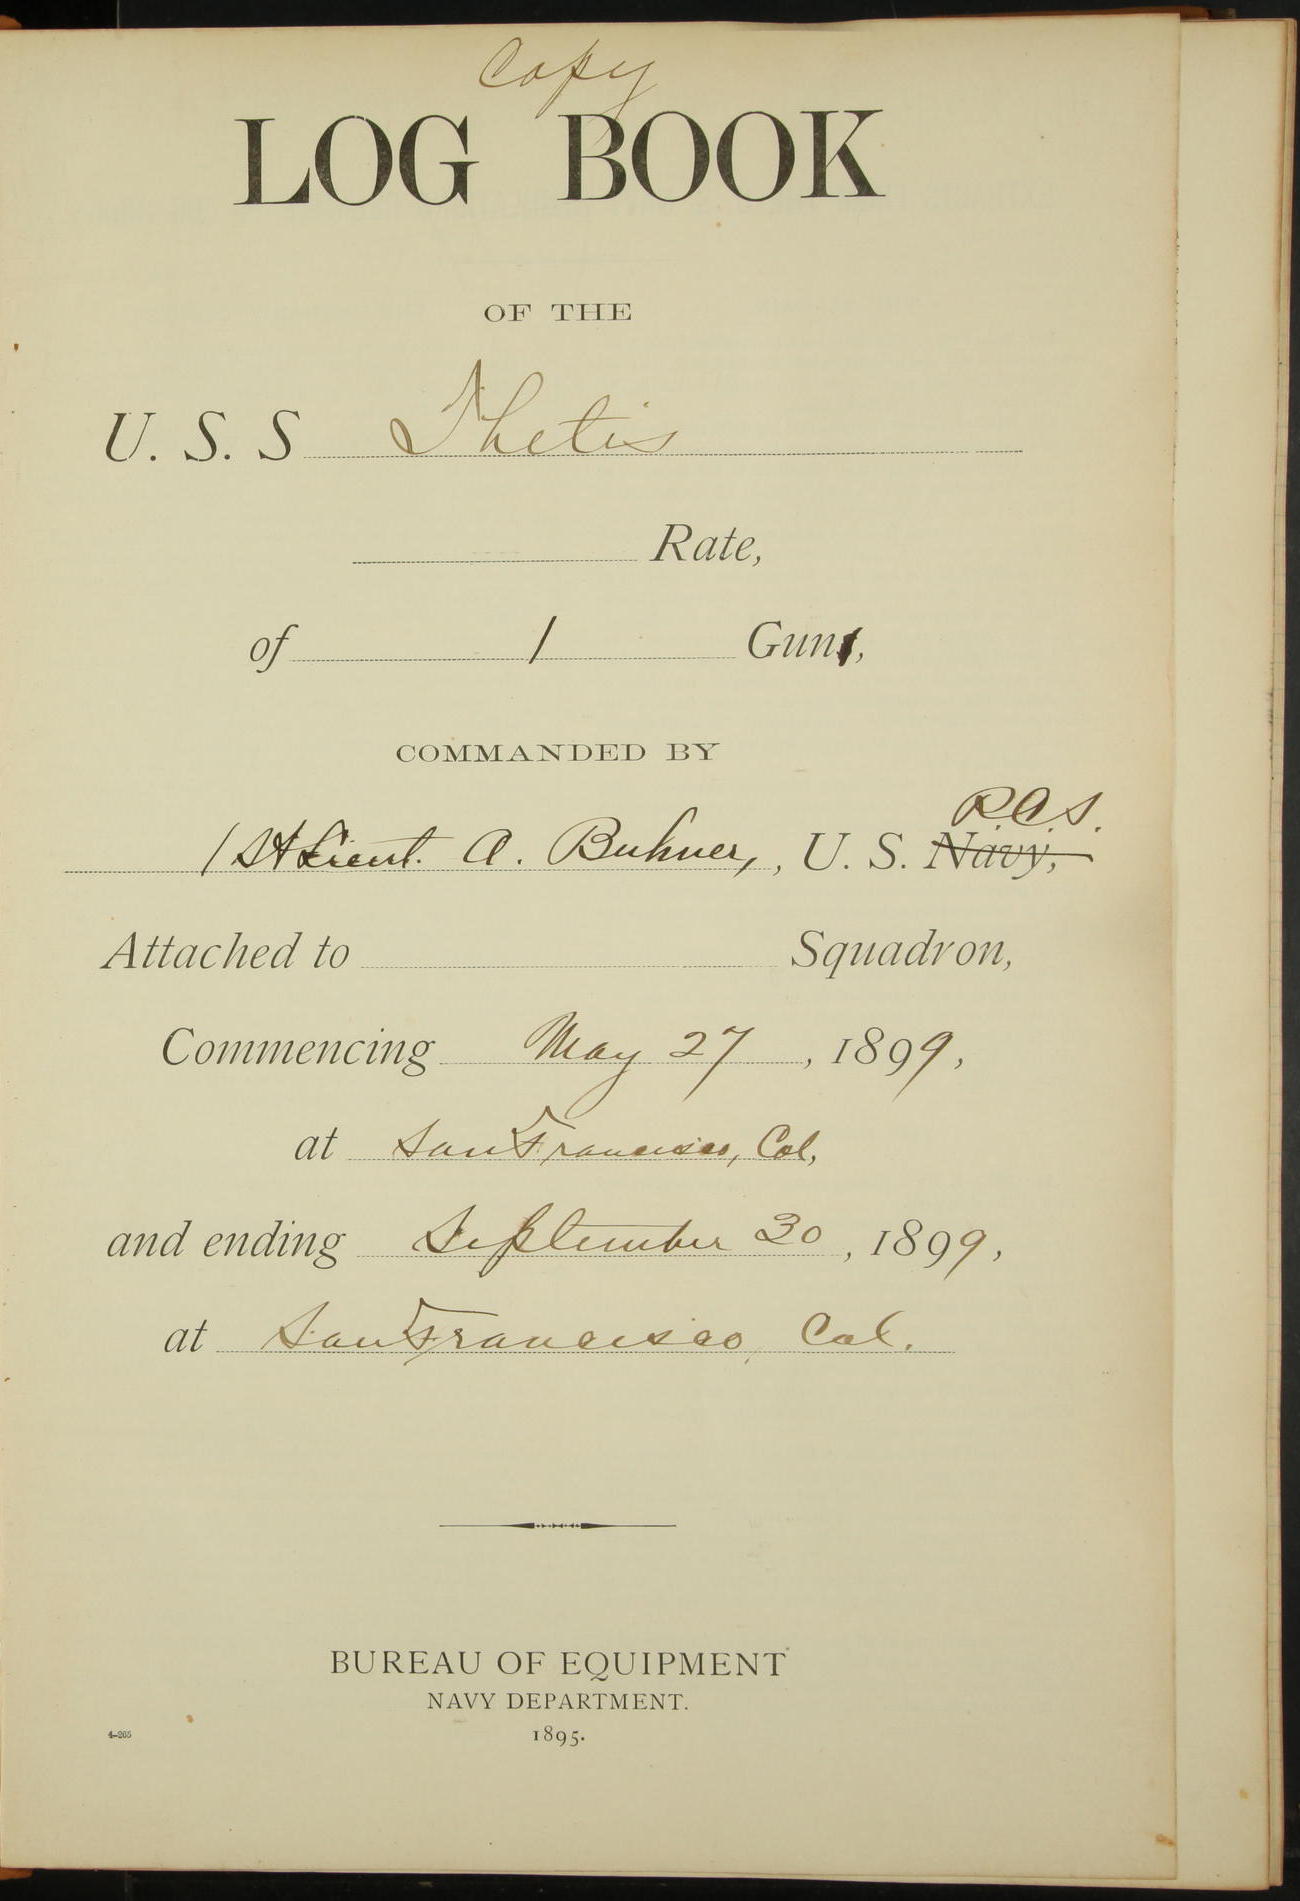 Copy
LOG BOOK
OF THE
U. S. S Thetis
Rate,
of 1 Gun,
COMMANDED BY
R.C.S.
1st Lieut. A. Buhner, , U. S. Navy,
Attached to Squadron,
Commencing May 27 , 1899,
at San Francisco, Cal,
and ending September 30 , 1899,
at San Francisco, Cal.
BUREAU OF EQUIPMENT
NAVY DEPARTMENT.
1895.
4-265